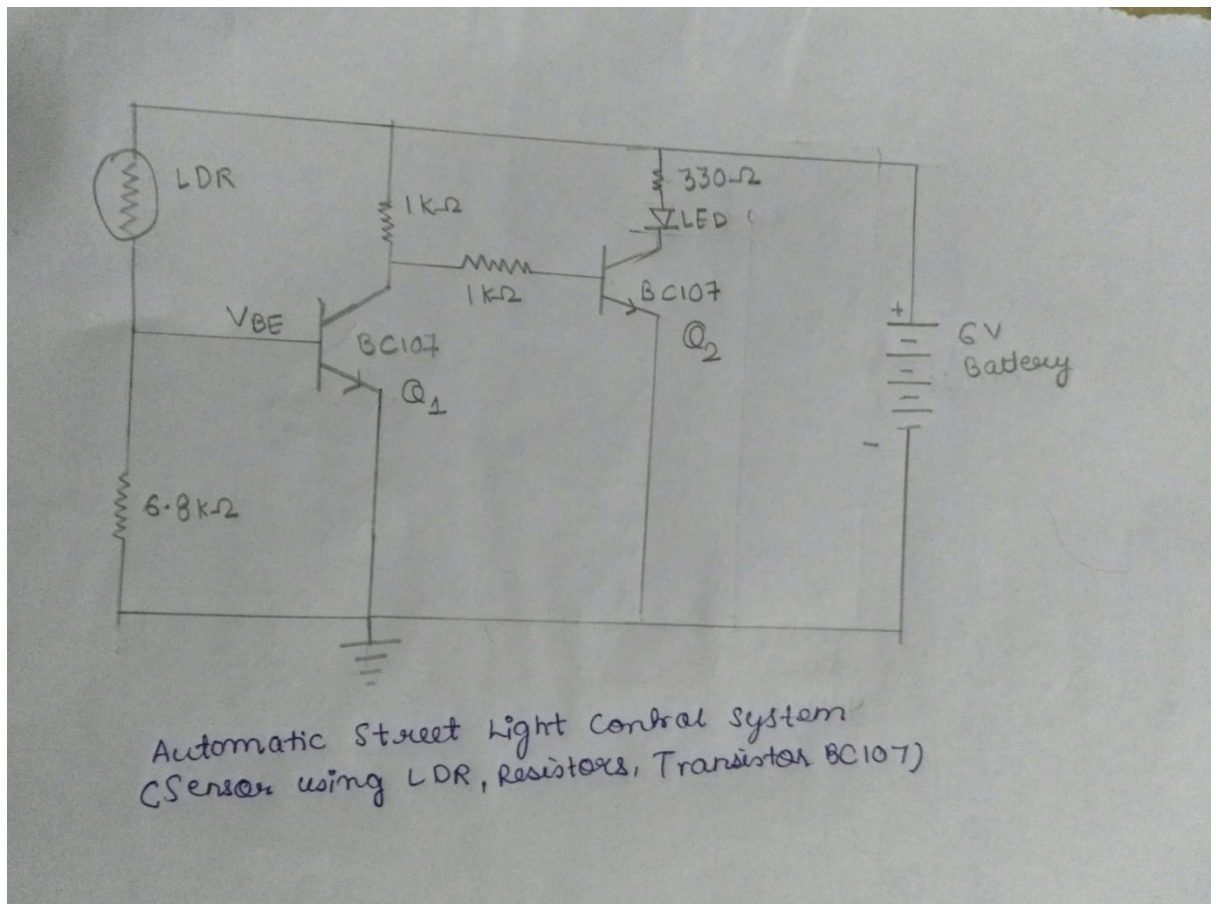 LDR
1KΩ
330Ω
LED
1KΩ
VBE
BC107
Q1
BC107
Q2
+
6V
Battery
-
6.8KΩ
Automatic Street Light Control System
(Sensor using LDR, Resistors, Transistor BC107)